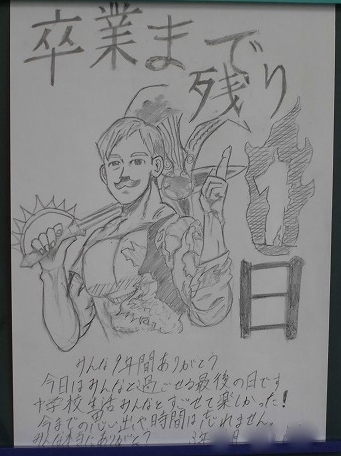 卒業まで
残り
1
日
みんな9年間ありがとう
今日はみんなと過ごせる最後の日です
中学校生活みんなとすごせて楽しかった!
今までの思い出や時間は忘れません。
みんな本当にありがとう